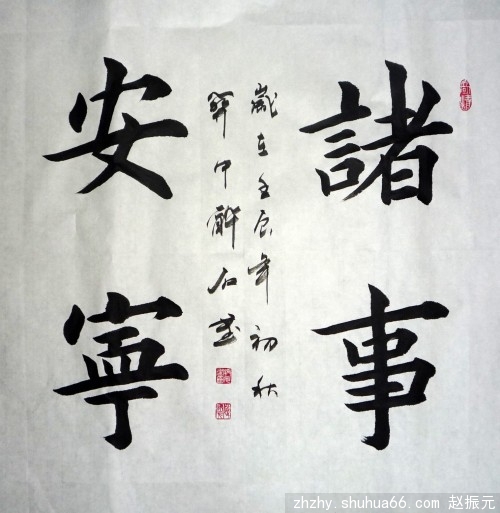 諸事
安寧
歲在壬辰年初秋
石
zhzhy.shuhua66.com 赵振元